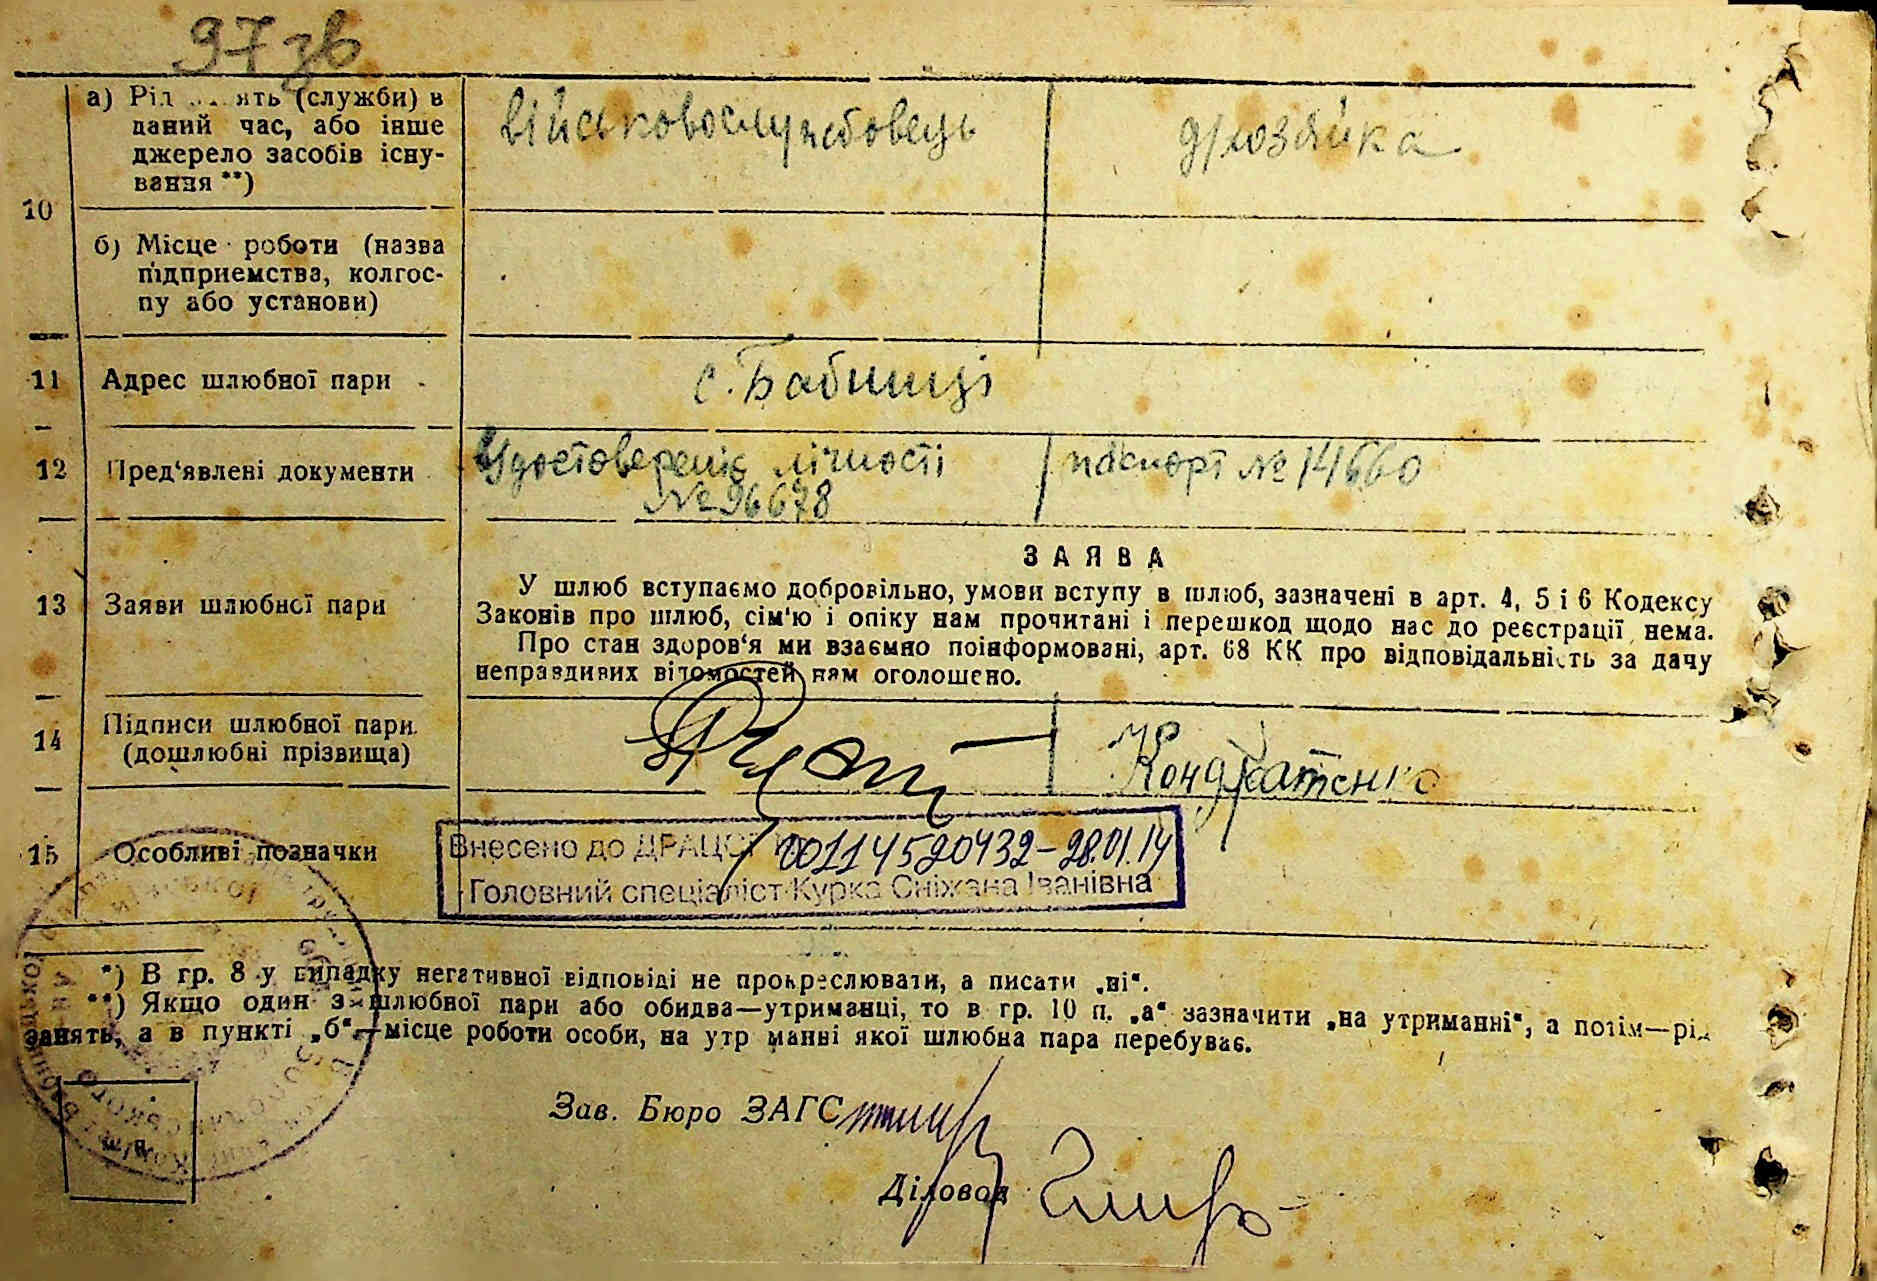 97 зв
10
а) Рід занять (служби) в
даний час, або інше
джерело засобів існу-
вання **)
військовослужбовець
д/хозяйка
б) Місце роботи (назва
підприемства, колгос-
пу або установи)
11 Адрес шлюбної пари
с. Бабинці
12 Пред'явлені документи
Удостовереніє лічності
№ 96678
паспорт № 14660
13 Заяви шлюбної пари
ЗАЯВА
У шлюб вступаємо добровільно, умови вступу в шлюб, зазначені в арт. 4, 5 і 6 Кодексу
Законів про шлюб, сім'ю і опіку нам прочитані і перешкод щодо нас до реєстрації нема.
Про стан здоров'я ми взаємно поінформовані, арт. 68 КК про відповідальність за дачу
неправдивих відомостей нам оголошено.
14 Підписи шлюбної пари
(дошлюбні прізвища)
Кондратенко
15 Особливі позначки
Внесено до ДРАЦСГ 00114520432-28.01.14
Головний спеціаліст Курка Сніжана Іванівна
*) В гр. 8 у випадку негативної відповіді не прокреслювати, а писати „ні“.
**) Якщо один з шлюбної пари або обидва—утриманці, то в гр. 10 п. „а“ зазначити „на утриманні“, а потім—рід
занять, а в пункті „б“—місце роботи особи, на утр манні якої шлюбна пара перебуває.
Зав. Бюро ЗАГС
Діловод
м. п.